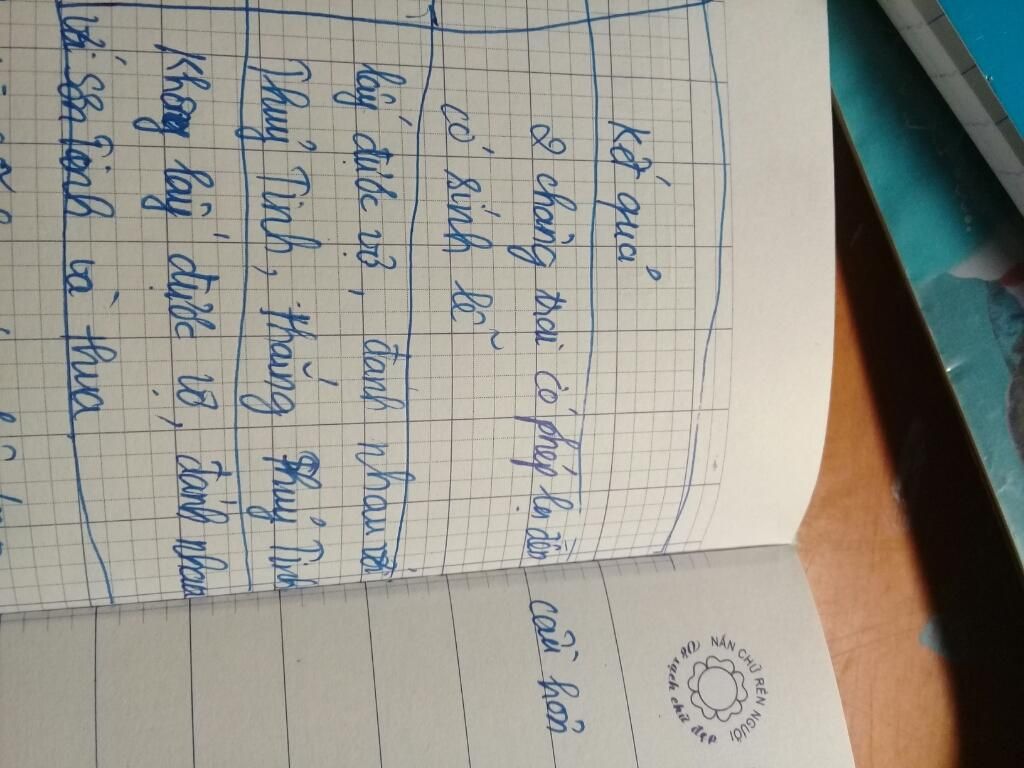 Kết quả
2 chàng trai có phép lạ đến cầu hôn
có sính lễ
lấy được vợ, đánh nhau với
Thuỷ Tinh, thắng Thuỷ Tinh
Không lấy được vợ, đánh nhau
với Sơn Tinh và thua
NẮN CHỮ RÈN NGƯỜI
chữ đẹp